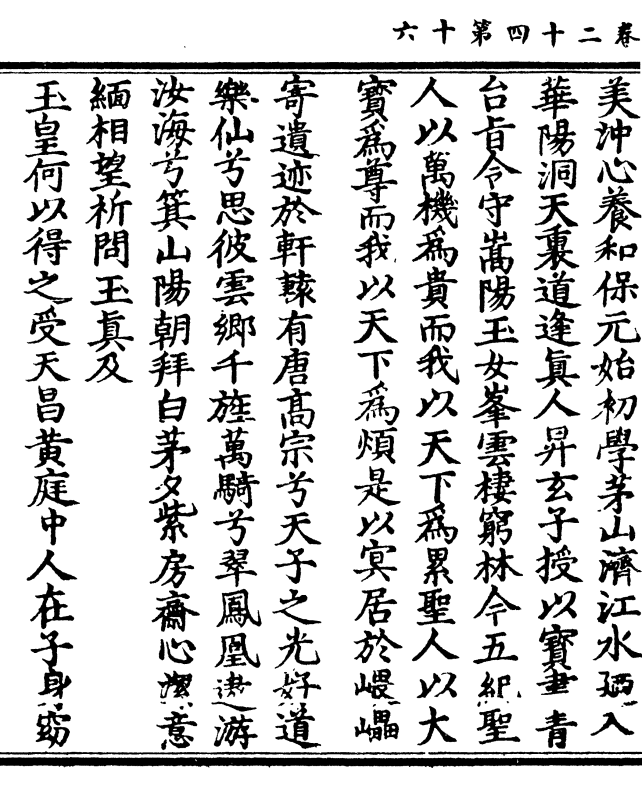 卷二十四第十六
美沖心養和保元始初學茅山濟江水廼入
華陽洞天裏道逢眞人昇玄子授以寶書青
台旨令守嵩陽玉女峯雲棲窮林今五紀聖
人以萬機爲貴而我以天下爲累聖人以大
寶爲尊而我以天下爲煩是以冥居於嵔㠥
寄遺迹於軒轅有唐髙宗兮天子之光好道
樂仙兮思彼雲鄉千旌萬騎兮翠鳳凰遨游
汝海兮箕山陽朝拜白茅夕紫房齋心潔意
緬相望祈問玉眞及
玉皇何以得之受天昌黃庭中人在子身窈